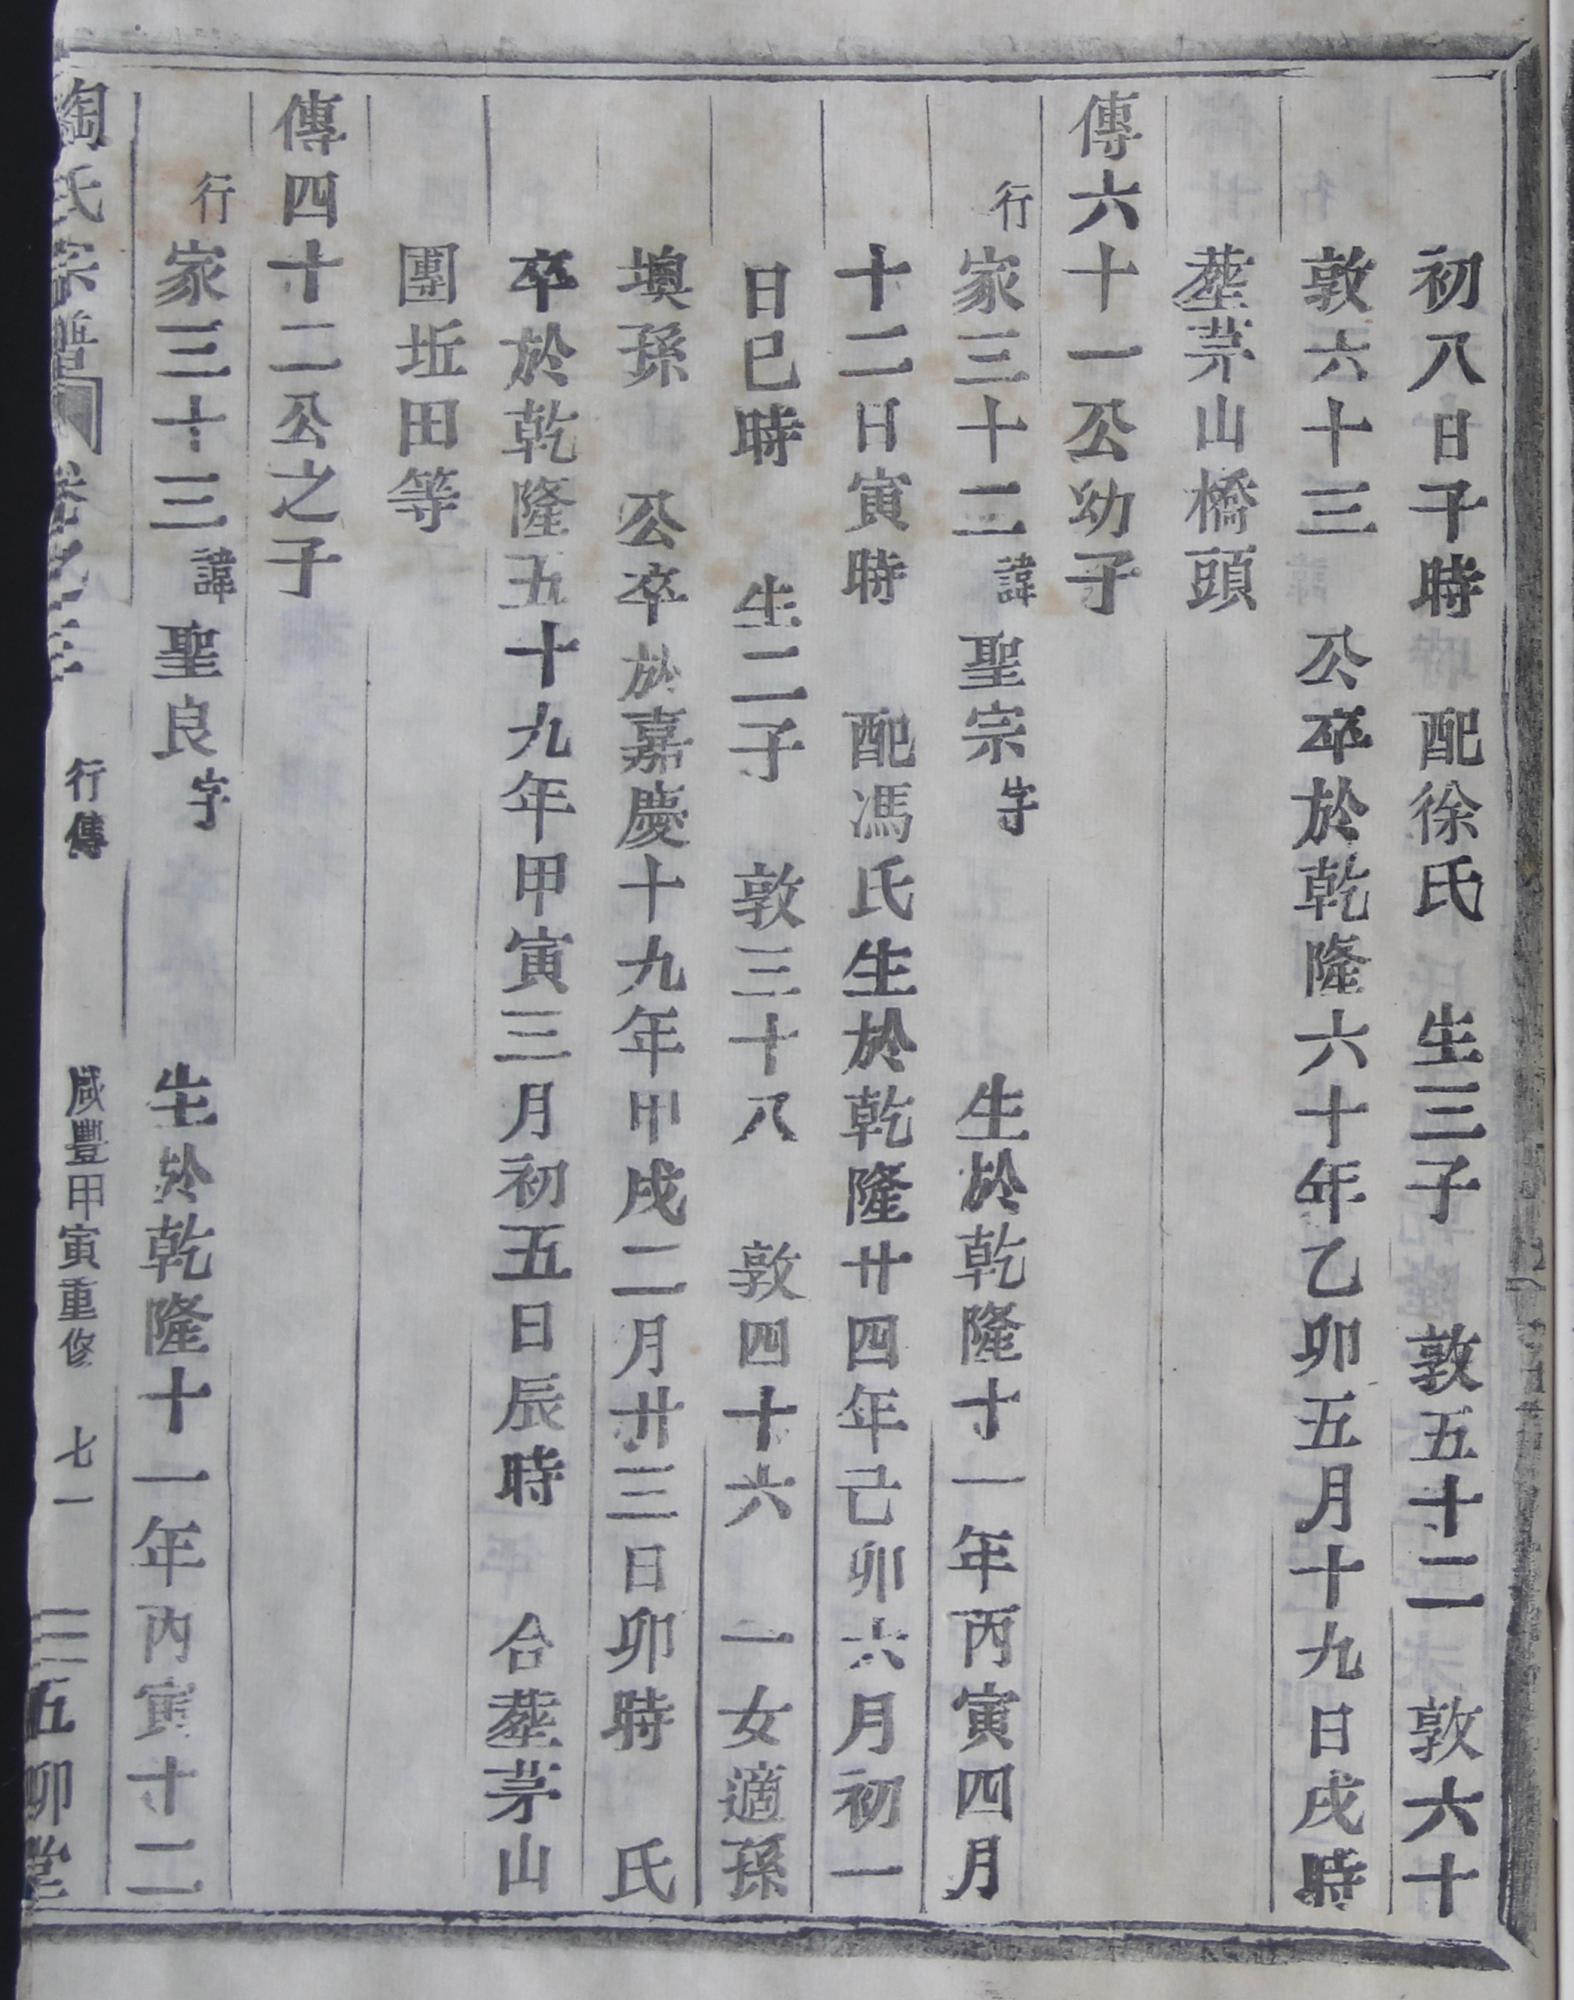 初八日子時 配徐氏 生三子 敦五十二 敦六十
敦六十三 公卒於乾隆六十年乙卯五月十九日戌時
塟茅山橋頭
傳六十一公幼子
行家三十二諱聖宗字 生於乾隆十一年丙寅四月
十二日寅時 配馮氏生於乾隆廿四年己卯六月初一
日巳時 生二子 敦三十八 敦四十六 一女適孫
墺孫 公卒於嘉慶十九年甲戌二月廿三日卯時 氏
卒於乾隆五十九年甲寅三月初五日辰時 合塟茅山
團坵田等
傳四十二公之子
行家三十三諱聖良字 生於乾隆十一年丙寅十二
陶氏宗譜 卷之三 行傳 咸豐甲寅重修 七一 五柳堂